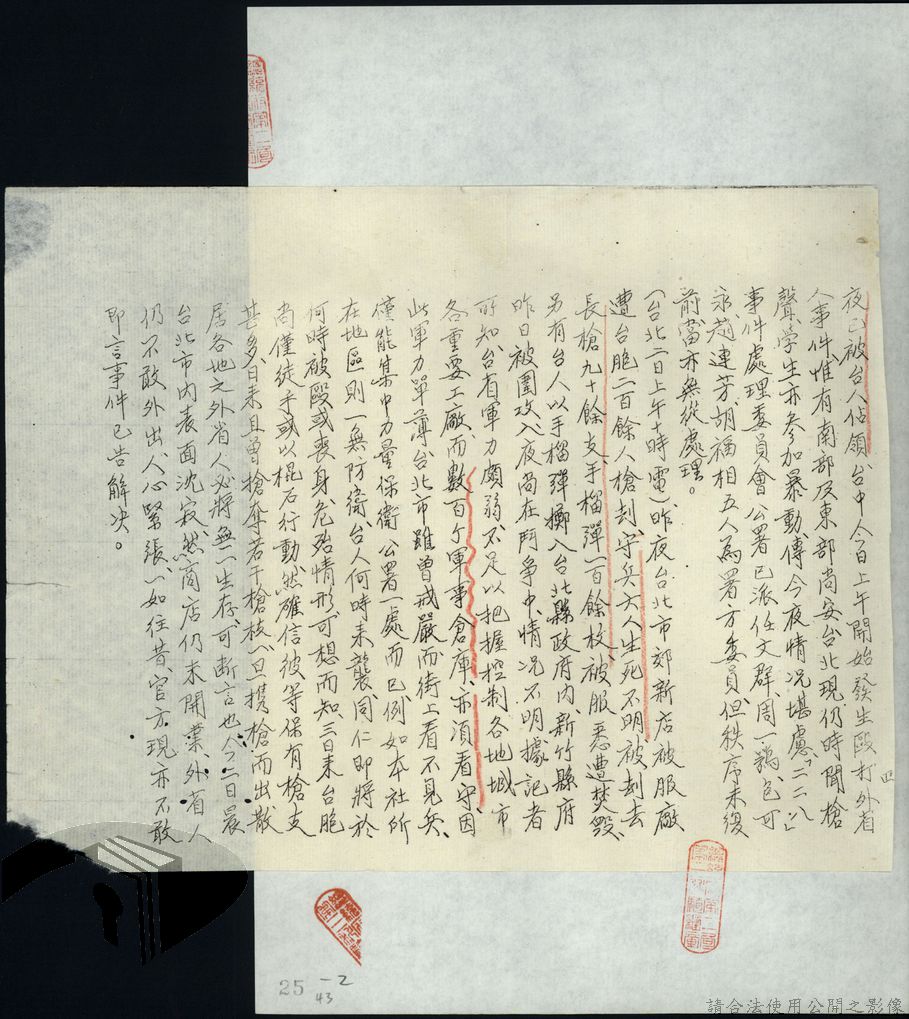 夜已被台人佔領、台中今日上午開始發生毆打外省
人事件、惟有南部及東部尚安、台北現仍時聞槍
聲、學生亦參加暴動、傳今夜情況堪慮、「二二八」
事件處理委員會公署已派任文群、周一鶚、包可
永、趙連芳、胡福相五人為署方委員、但秩序未復
前當亦無從處理。
(台北二日上午十時電)昨夜台北市郊新店被服廠
遭台胞二百餘人槍刦、守兵六人生死不明、被刦去
長槍九十餘支、手榴彈一百餘枚、被服悉遭焚毀、
另有台人以手榴彈擲入台北縣政府內、新竹縣府
昨日被圍攻、入夜尚在鬥爭中、情况不明、據記者
所知、台省軍力頗弱、不足以把握控制各地城市
各重要工廠、而數百个軍事倉庫、亦須看守、因
此軍力單薄、台北市雖曾戒嚴、而街上看不見兵、
僅能集中力量保衛公署一處而已、例如本社所
在地區則一無防衛、台人何時來襲、同仁即將於
何時被毆或喪身、危殆情形、可想而知、三日來台胞
尚僅徒手或以棍石行動、然確信彼等保有槍支
甚多、日來且曾槍奪若干槍枝、一旦携槍而出、散
居各地之外省人必將無一生存、可斷言也、今二日晨
台北市內表面沈寂、然商店仍未開業、外省人
仍不敢外出、人心緊張、一如往昔、官方現亦不敢
即言事件已告解决。
四
25 -2
43
請合法使用公開之影像